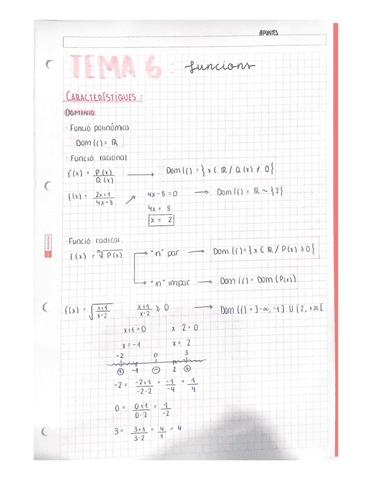 APUNTES
TEMA 6 : funcions
CARACTERÍSTIQUES :
DOMINIO
· Funció polinòmica
Dom f() = ℝ
· Funció racional
f(x) = P(x)/Q(x) → Dom f() = { x ∈ ℝ / Q(x) ≠ 0 }
f(x) = 2x+1/4x-8 → 4x - 8 = 0 → Dom f() = ℝ ~ {2}
4x = 8
x = 2
· Funció radical
f(x) = ⁿ√P(x) → "n" par → Dom f() = { x ∈ ℝ / P(x) ≥ 0 }
→ "n" impar → Dom f() = Dom (P(x))
f(x) = √(x+1/x-2) x+1/x-2 ≥ 0 → Dom f() = ]-∞, -1] U [2, +∞[
x+1 = 0 x 2 = 0
x = -1 x = 2
-2 0 3
+ -1 - 2 +
-2 = -2+1/-2-2 = -1/-4 = 1/4
0 = 0+1/0-2 = 1/-2
3 = 3+1/3-2 = 4/1 = 4